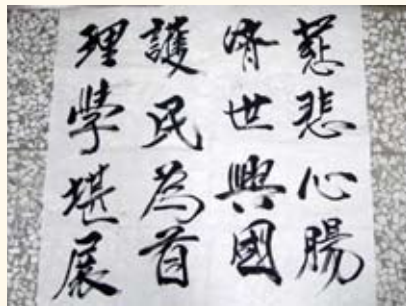 慈悲心腸
濟世興國
護民為首
理學堪展